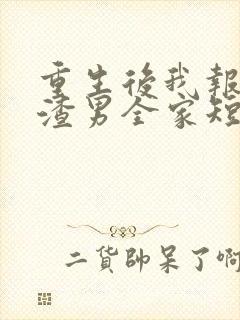 重生後我報
渣男全家短
二貨帥呆了啊